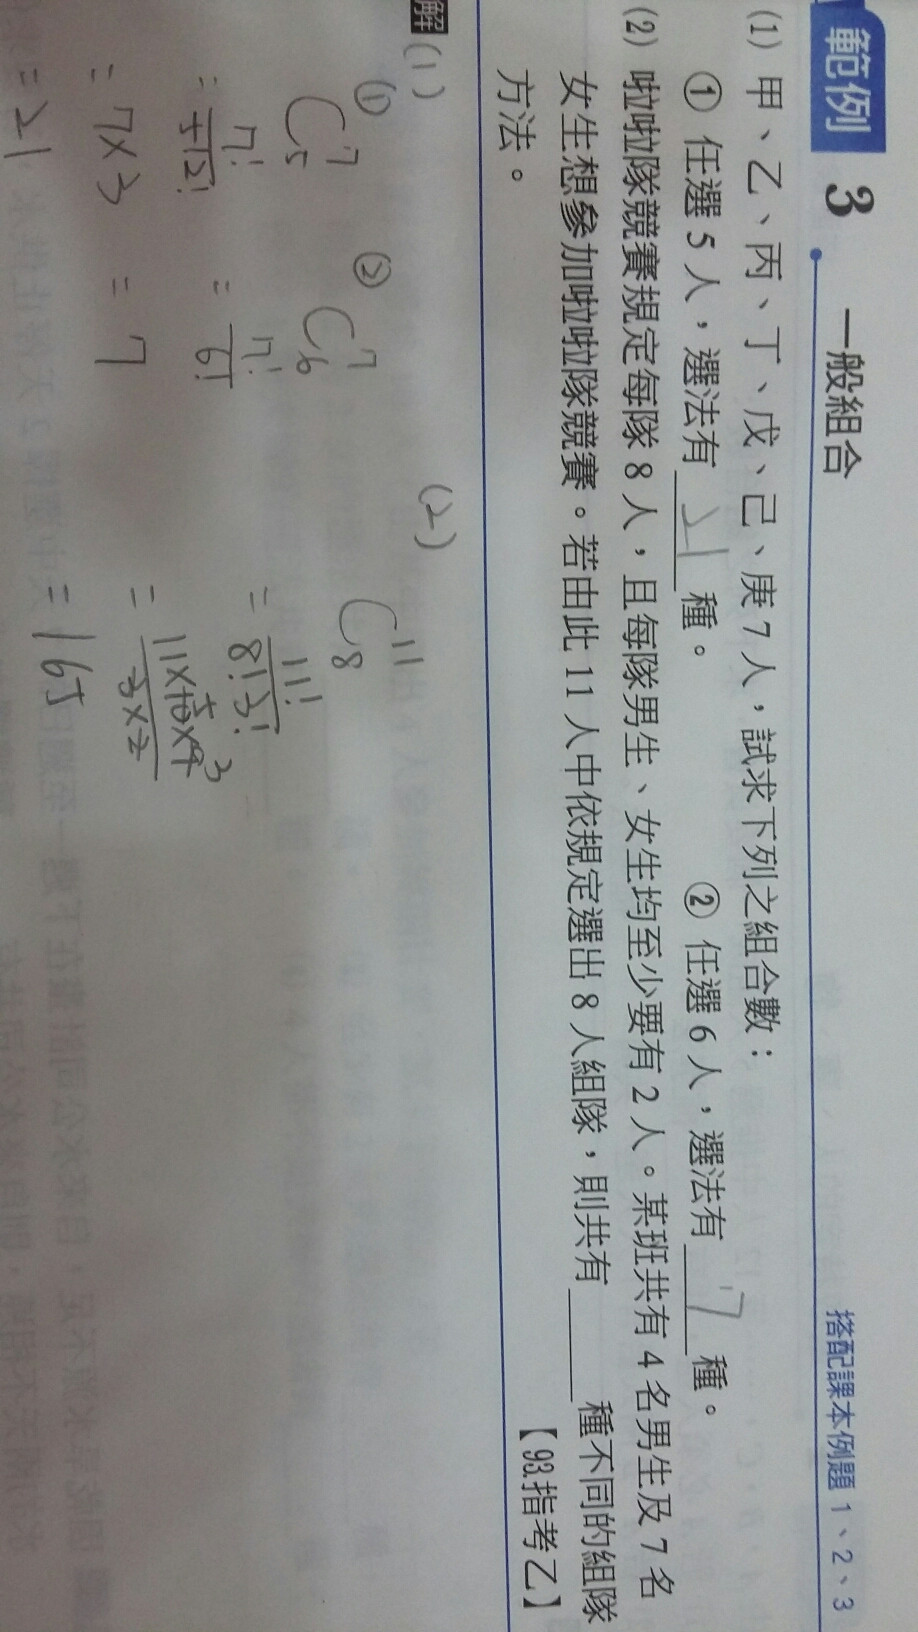 範例 3 一般組合
搭配課本例題 1、2、3
(1) 甲、乙、丙、丁、戊、己、庚 7 人，試求下列之組合數：
① 任選 5 人，選法有 21 種。 ② 任選 6 人，選法有 7 種。
(2) 啦啦隊競賽規定每隊 8 人，且每隊男生、女生均至少要有 2 人。某班共有 4 名男生及 7 名
女生想參加啦啦隊競賽。若由此 11 人中依規定選出 8 人組隊，則共有＿＿＿種不同的組隊
方法。 【93.指考乙】
解 (1)
① C⁷₅
= 7!/5!2!
= 7×3
= 21
② C⁷₆
= 7!/6!
= 7
(2)
C¹¹₈
= 11!/8!3!
= 11×10×9/3×2
= 165